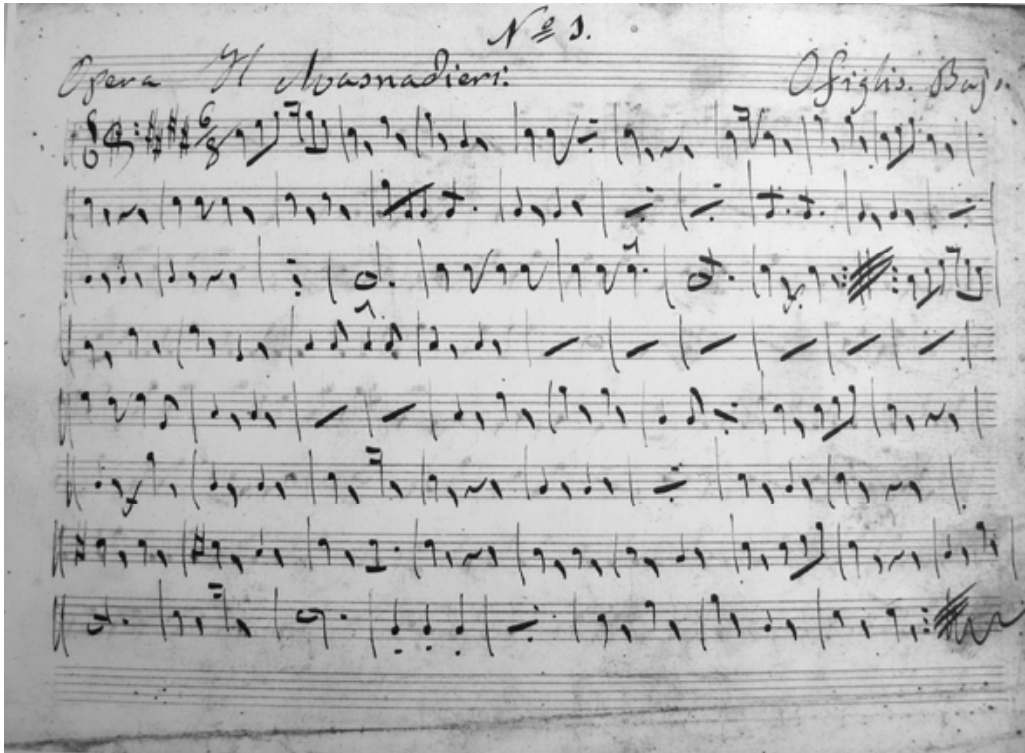 Nº 3.
Opera Il Masnadieri: Ofiglis. Baj.
6/8